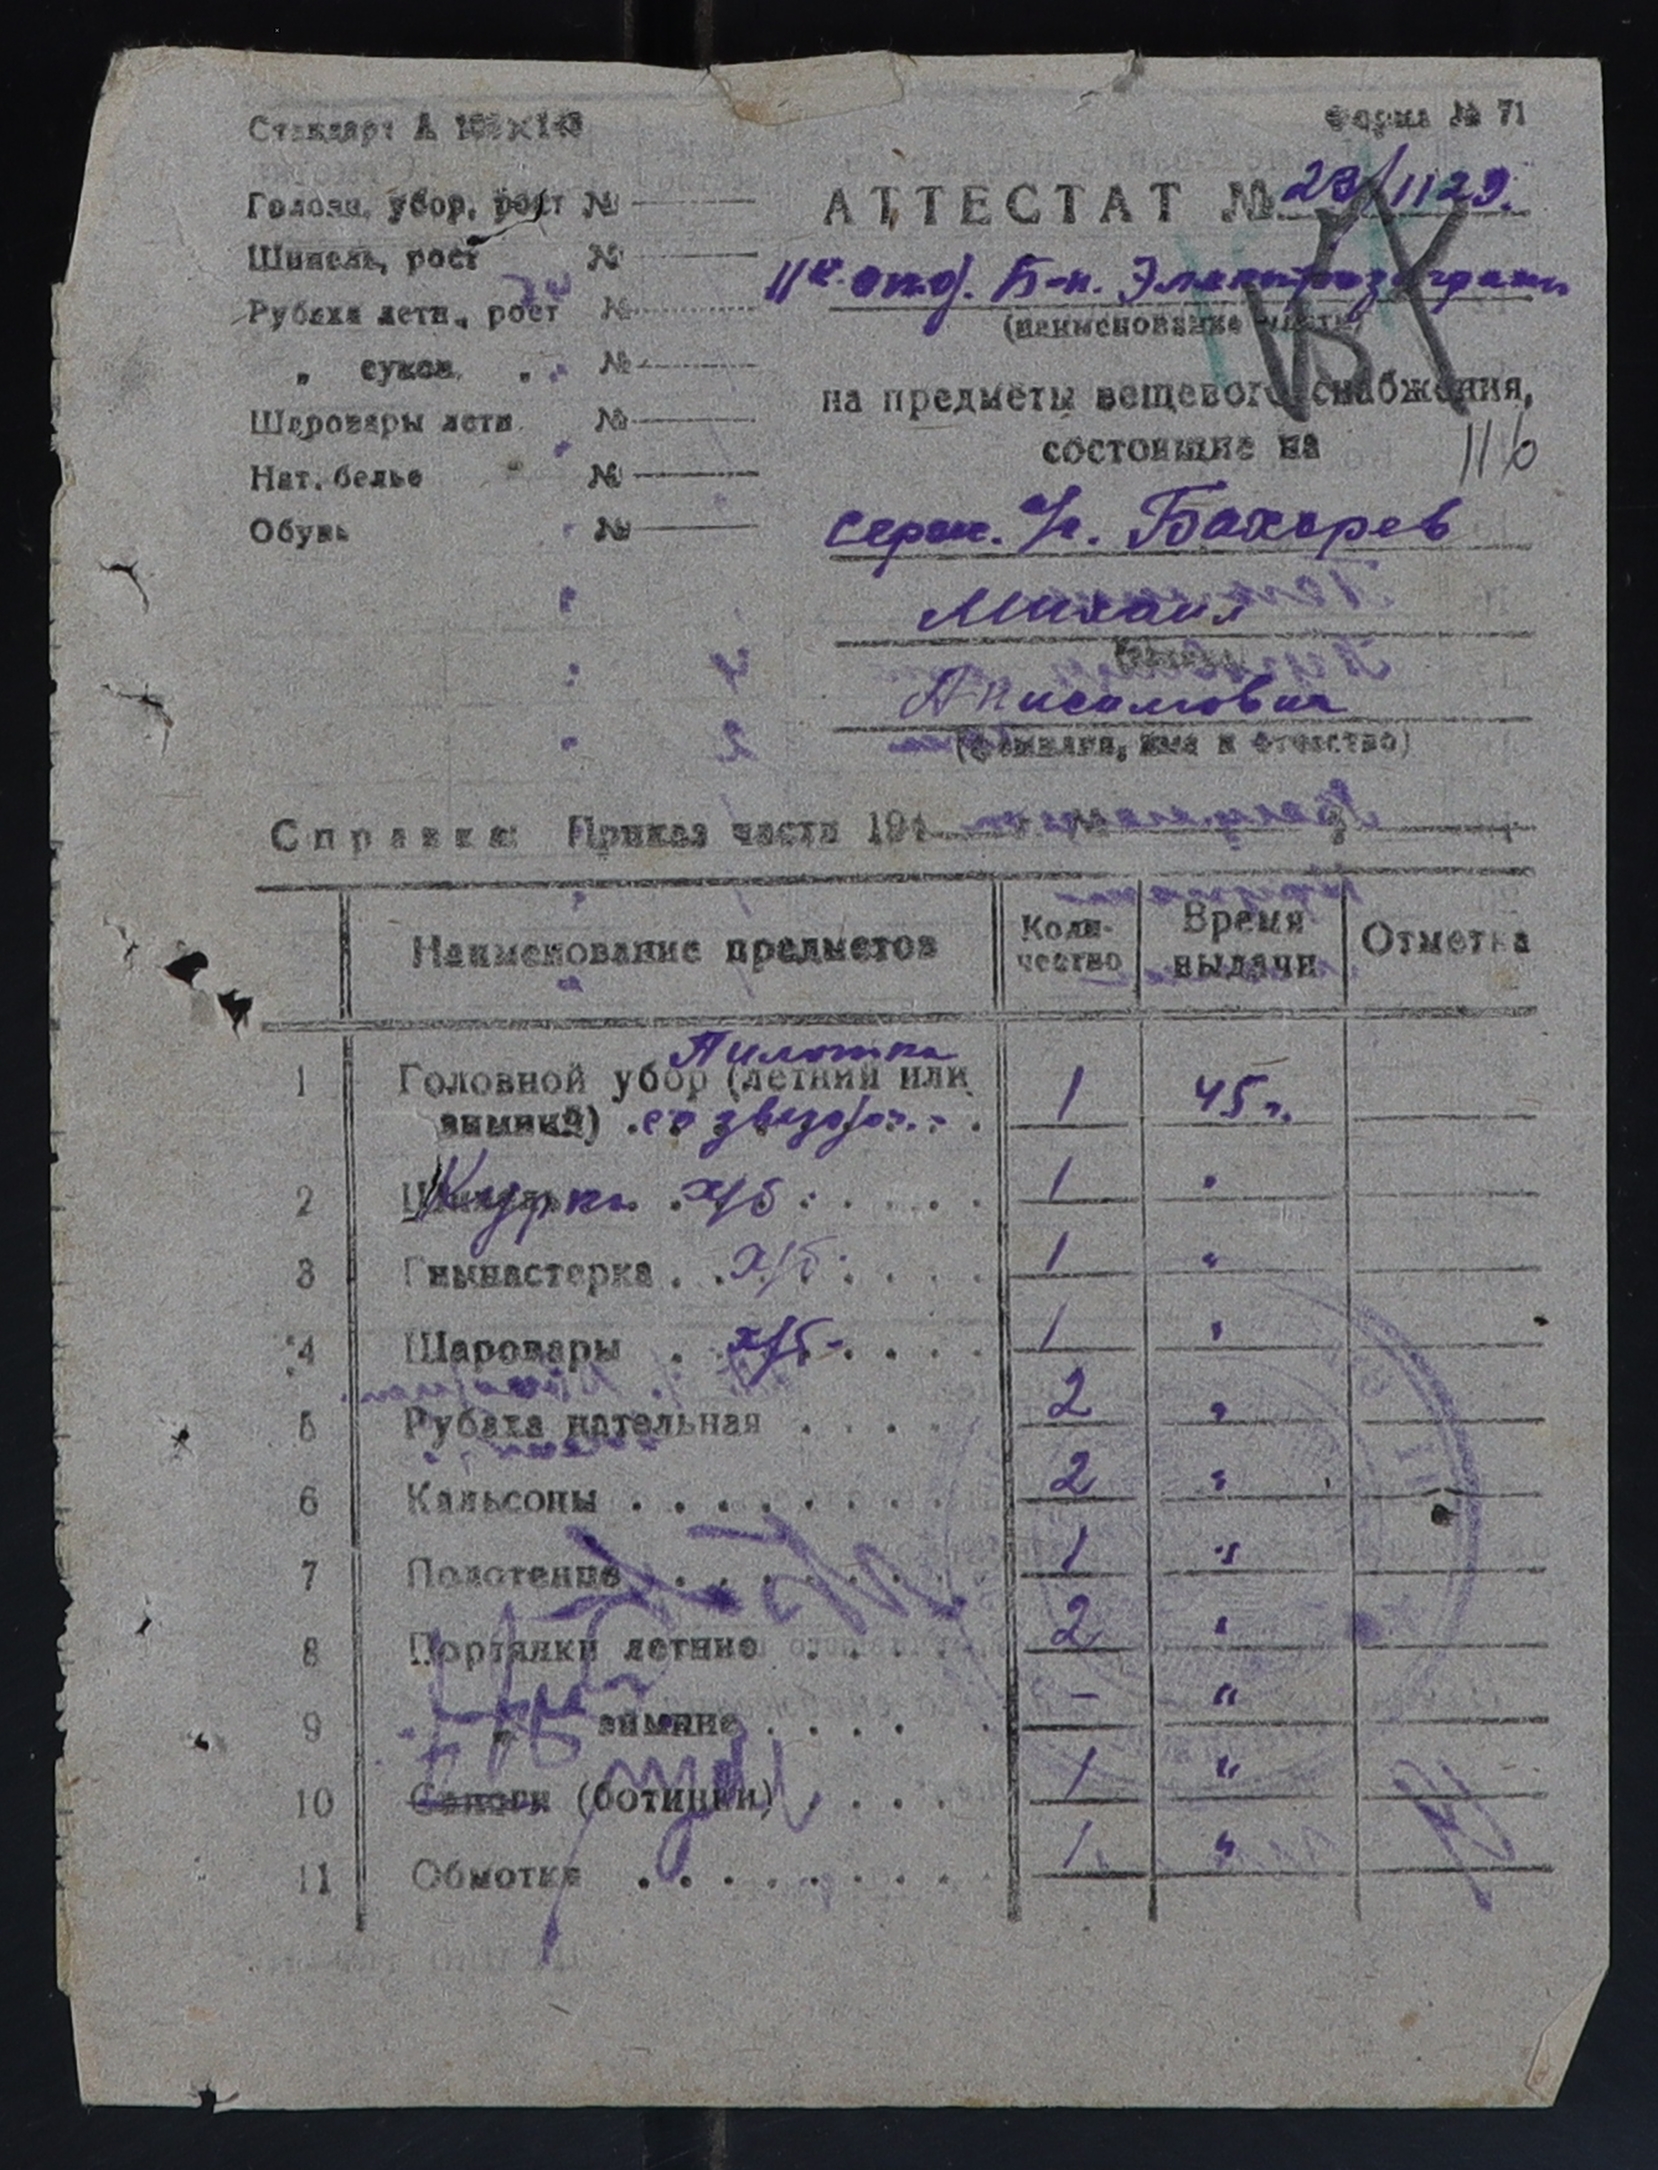 Стандарт А 103×148
Форма № 71
Головн. убор, рост №
Шинель, рост №
Рубаха летн., рост №
„ сукон. „ №
Шаровары летн. №
Нат. белье №
Обувь №
АТТЕСТАТ № 23/1129.
11й отд. Б-н. Электрозаграж
(наименование части)
на предметы вещевого снабжения,
состоящие на
116
серж. Бахарев
Михаил
Анисимович
(фамилия, имя и отчество)
Справка: Приказ части 194
Наименование предметов
Коли-чество
Время выдачи
Отметка
Пилотка
1 Головной убор (летний или
зимний) со звездоч. 1 45 г.
2 Шинель Куртка х/б 1 "
3 Гимнастерка х/б 1 "
4 Шаровары х/б 1 "
5 Рубаха нательная 2 "
6 Кальсоны 2 "
7 Полотенце 1 "
8 Портянки летние 2 "
9 " зимние - "
10 Сапоги (ботинки) 1 "
11 Обмотки 1 "